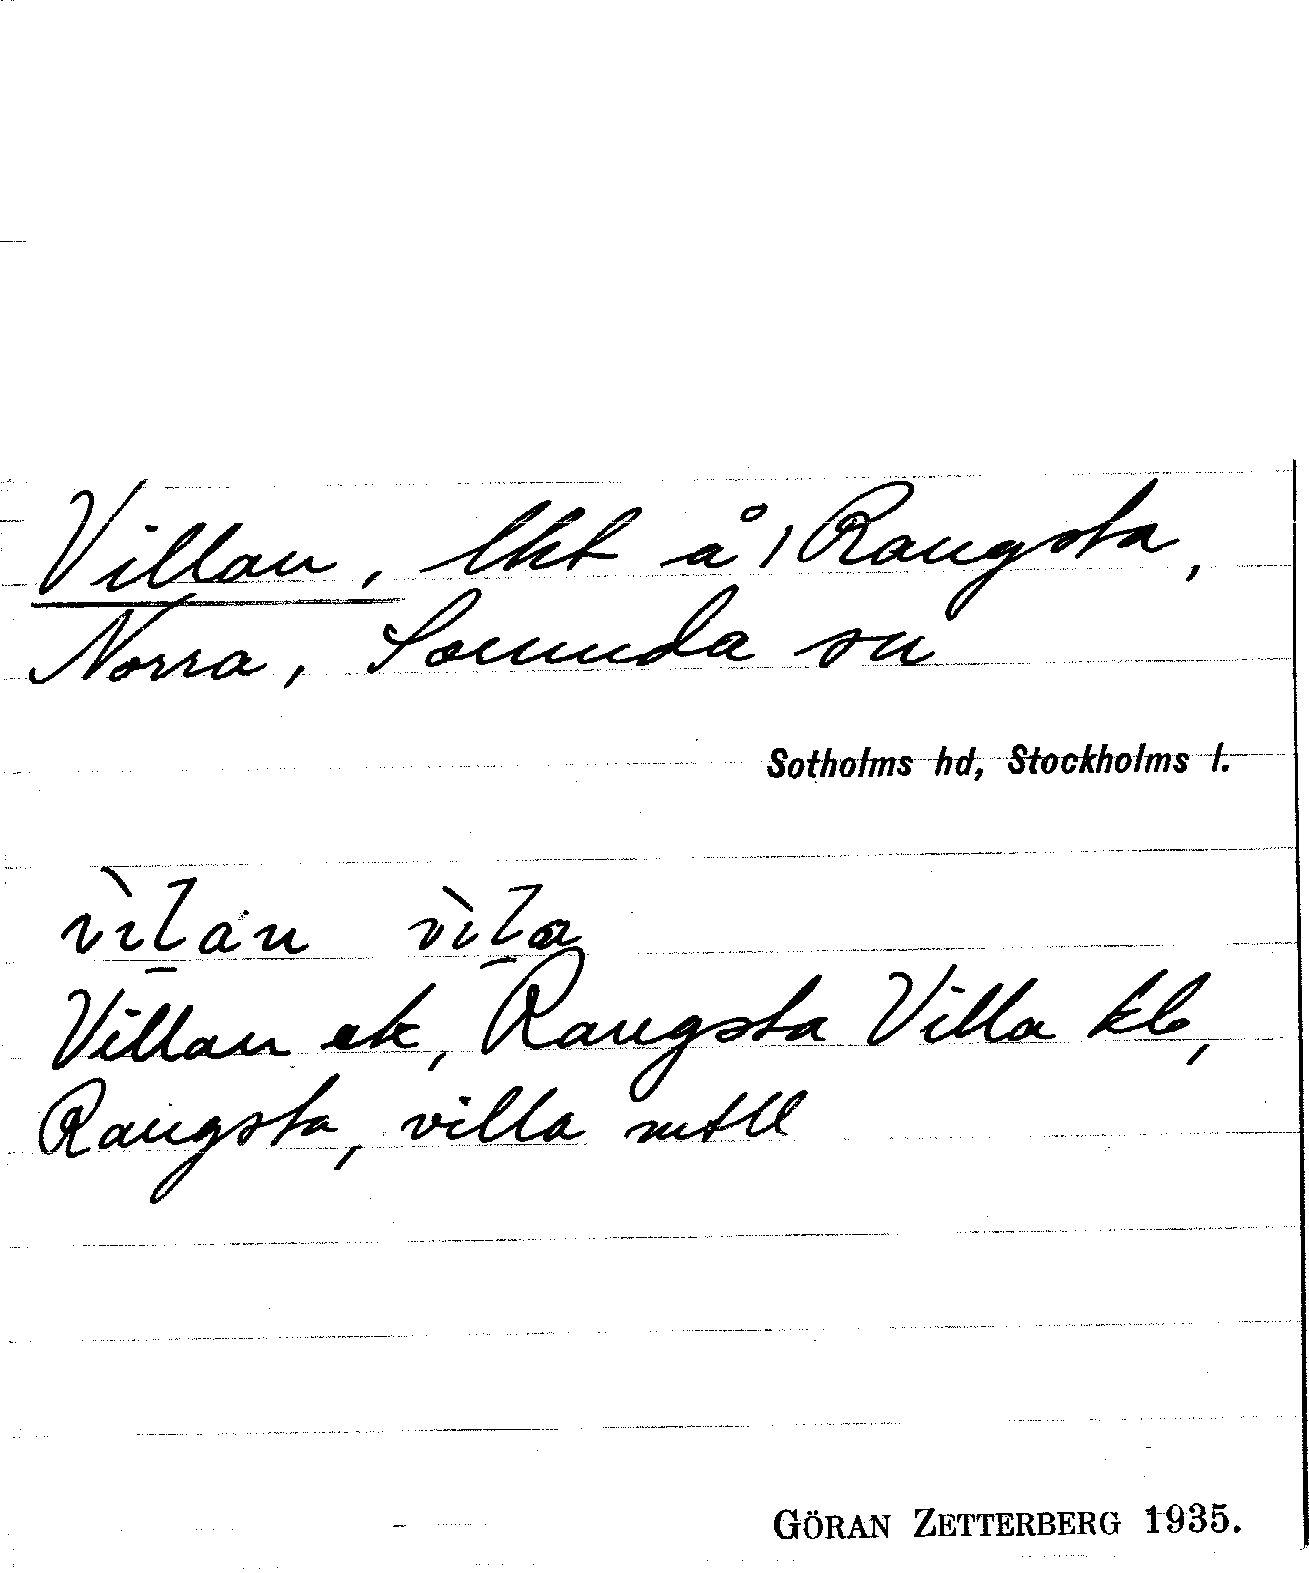 Villan, lht å 1 Rangsta,
Norra, Sorunda sn
Sotholms hd, Stockholms l.
vìl̠an vìl̠a
Villan ek, Rangsta Villa kb,
Rangsta, villa mtll
GÖRAN ZETTERBERG 1935.